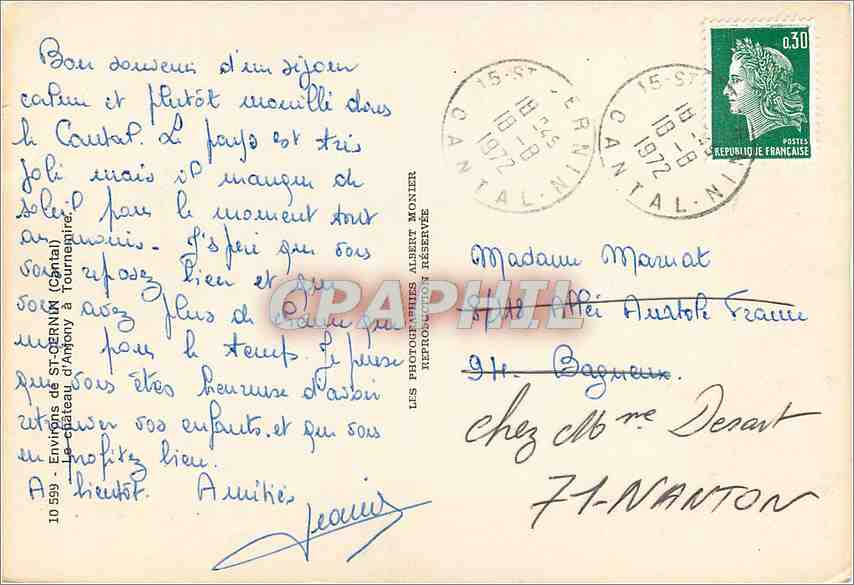 Bon souvenir d'un séjour
calme et plutôt mouillé dans
le Cantal. Le pays est très
joli mais il manque de
soleil pour le moment tout
au moins. J'espère que vous
vous reposez bien et que
vous avez plus de chance que
nous pour le temps. Je pense
que vous êtes heureuse d'avoir
retrouver vos enfants et que vous
en profitez bien.
A bientôt. Amitiés
10 599 - Environs de ST-CERNIN (Cantal)
Le château d'Anjony à Tournemire.
LES PHOTOGRAPHIES ALBERT MONIER
REPRODUCTION RÉSERVÉE
CPAPHIL
15-ST CERNIN
18H45
18-8
1972
CANTAL
15-ST
18H45
18-8
1972
CANTAL
0,30
POSTES
REPUBLIQUE FRANÇAISE
Madame
Allée Anatole France
94. Bagneux.
chez Mme
71-NANTON